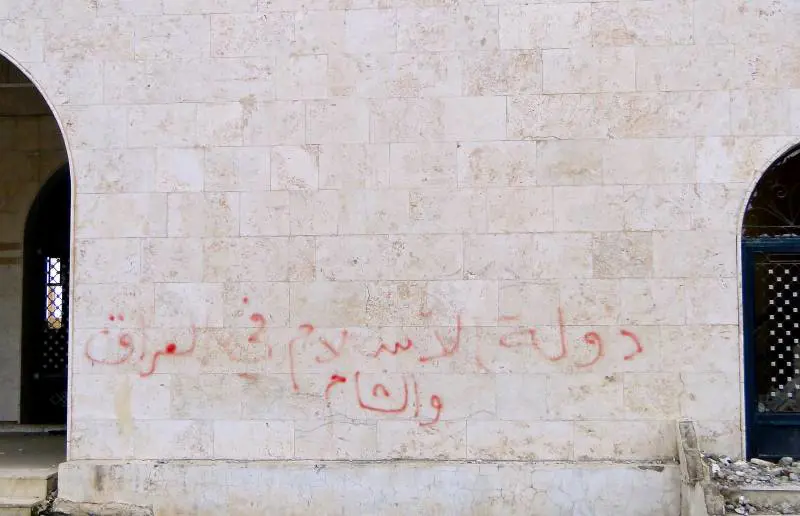 دولة لاسلام في لعراق
والشام